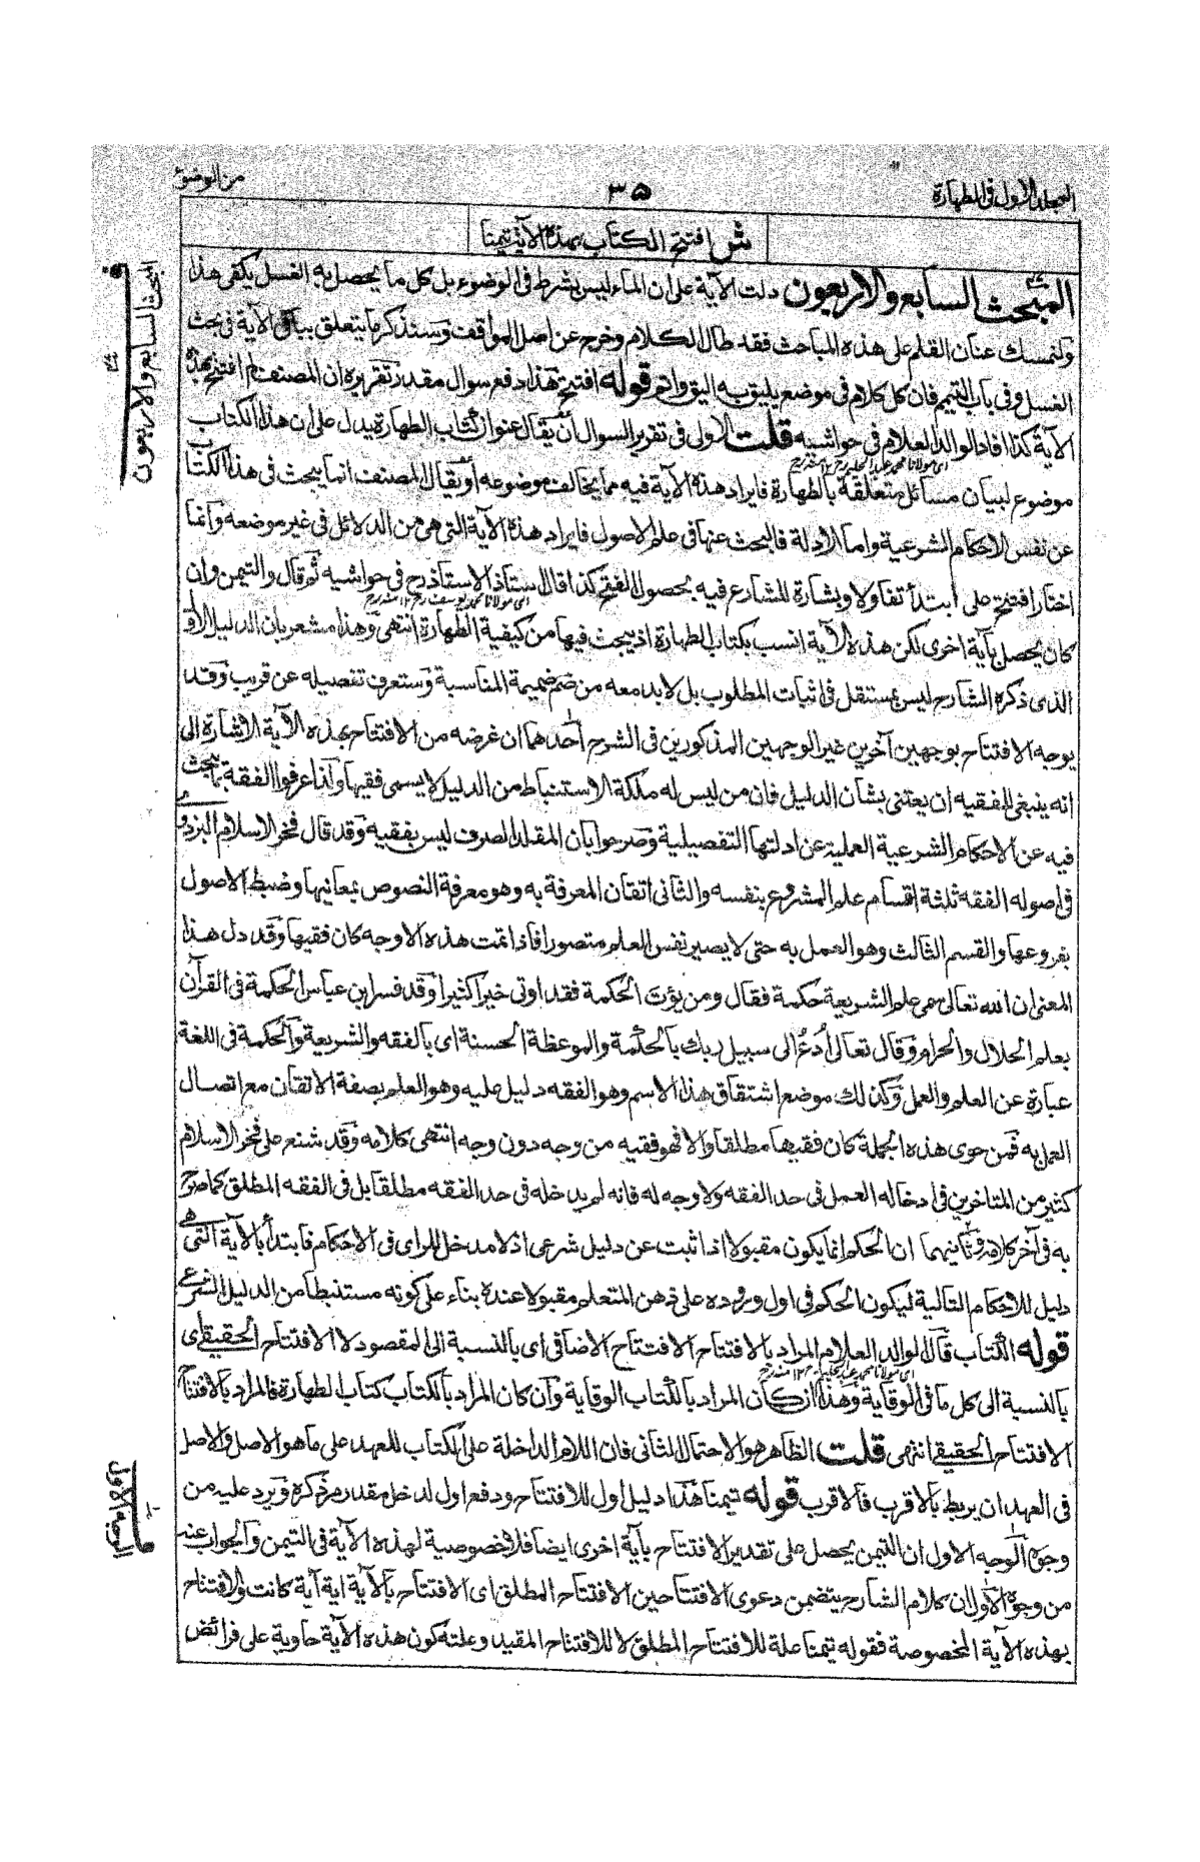 المجلد الاول فى الطهارة
٣٥
من الوضوء
ش افتتح الكتاب بهذه الآية تيمنا
المبحث السابع والاربعون دلت الآية على ان الماء ليس بشرط فى الوضوء بل كل ما يحصل به الغسل يكفى هذا
ولنمسك عنان القلم على هذه المباحث فقد طال الكلام وخرج عن اصل المواقف وسنذكر ما يتعلق بباقى الآية فى بحث
الغسل وفى باب التيمم فان كل كلام فى موضع يليق به اليق واتم قوله افتتح هذا دفع سوال مقدر تقريره ان المصنف لم افتتح بهذه
الآية كذا افاد الوالد العلام فى حواشيه قلت الاول فى تقرير السوال ان يقال عنوان كتاب الطهارة يدل على ان هذا الكتاب
اى مولانا محمد عبد الحليم رح ١٢ منه رح
موضوع لبيان مسائل متعلقة بالطهارة فايراد هذه الآية فيه مما يخالف موضوعه او يقال المصنف انما يبحث فى هذا الكتاب
عن نفس الاحكام الشرعية واما الادلة فالبحث عنها فى علم الاصول فايراد هذه الآية التى هى من الدلائل فى غير موضعه وانما
اختار افتتح على ابتدأ تفاولا وبشارة للشارع فيه بحصول الفتح كذا قال استاذ الاستاذ رح فى حواشيه ثم قال والتيمن وان
اى مولانا محمد يوسف رح ١٢ منه رح
كان يحصل بآية اخرى لكن هذه الآية انسب بكتاب الطهارة اذ يبحث فيها من كيفية الطهارة انتهى وهذا مشعر بان الدليل الاول
الذى ذكره الشارح ليس بمستقل فى اثبات المطلوب بل لا بد معه من ضم ضميمة المناسبة وستعرف تفصيله عن قريب وقد
يوجه الافتتاح بوجهين آخرين غير الوجهين المذكورين فى الشرح احدهما ان غرضه من الافتتاح بهذه الآية الاشارة الى
انه ينبغى للفقيه ان يعتنى بشان الدليل فان من ليس له ملكة الاستنباط من الدليل لا يسمى فقيها ولذا عرفوا الفقه بما يبحث
فيه عن الاحكام الشرعية العملية عن ادلتها التفصيلية وصرحوا بان المقلد الصرف ليس بفقيه وقد قال فخر الاسلام البزدوى
فى اصوله الفقه ثلثة اقسام علم المشروع بنفسه والثانى اتقان المعرفة به وهو معرفة النصوص بمعانيها وضبط الاصول
بفروعها والقسم الثالث وهو العمل به حتى لا يصير نفس العلم متصورا فاذا تمت هذه الاوجه كان فقيها وقد دل هذا
المعنى ان الله تعالى سمى علم الشريعة حكمة فقال ومن يؤت الحكمة فقد اوتى خيرا كثيرا وقد فسر ابن عباس الحكمة فى القرآن
بعلم الحلال والحرام وقال تعالى ادع الى سبيل ربك بالحكمة والموعظة الحسنة اى بالفقه والشريعة والحكمة فى اللغة
عبارة عن العلم والعمل وكذلك موضع اشتقاق هذا الاسم وهو الفقه دليل عليه وهو العلم بصفة الاتقان مع اتصال
العمل به فمن حوى هذه الجملة كان فقيها مطلقا والا فهو فقيه من وجه دون وجه انتهى كلامه وقد شنع على فخر الاسلام
كثير من المتاخرين فى ادخاله العمل فى حد الفقه ولا وجه له فانه لم يدخله فى حد الفقه مطلقا بل فى الفقه المطلق كما صرح
به فى آخر كلامه وثانيهما ان الحكم انما يكون مقبولا اذا ثبت عن دليل شرعى اذ لا مدخل للراى فى الاحكام فابتدأ بالآية التى هى
دليل للاحكام التالية ليكون الحكم فى اول وروده على ذهن المتعلم مقبولا عنده بناء على كونه مستنبطا من الدليل الشرعى
قوله الكتاب قال الوالد العلام المراد بالافتتاح الافتتاح الاضافى اى بالنسبة الى المقصود لا الافتتاح الحقيقى اى
اى مولانا محمد عبد الحليم رح ١٢ منه رح
بالنسبة الى كل ما فى الوقاية وهذا ان كان المراد بالكتاب الوقاية وان كان المراد بالكتاب كتاب الطهارة فالمراد بالافتتاح
الافتتاح الحقيقى انتهى قلت الظاهر هو الاحتمال الثانى فان اللام الداخلة على الكتاب للعهد على ما هو الاصل والاصل
فى العهد ان يربط بالاقرب فالاقرب قوله تيمنا هذا دليل اول للافتتاح ودفع اول لدخل مقدر مر ذكره ويرد عليه من
وجوه الوجه الاول ان التيمن يحصل على تقدير الافتتاح بآية اخرى ايضا فلا خصوصية لهذه الآية فى التيمن والجواب عنه
من وجوه الاول ان كلام الشارح يتضمن دعوى الافتتاحين الافتتاح المطلق اى الافتتاح بالآية اية آية كانت والافتتاح
بهذه الآية المخصوصة فقوله تيمنا علة للافتتاح المطلق لا للافتتاح المقيد وعلته كون هذه الآية حاوية على فرائض
المبحث السابع والاربعون
الوجه الاول